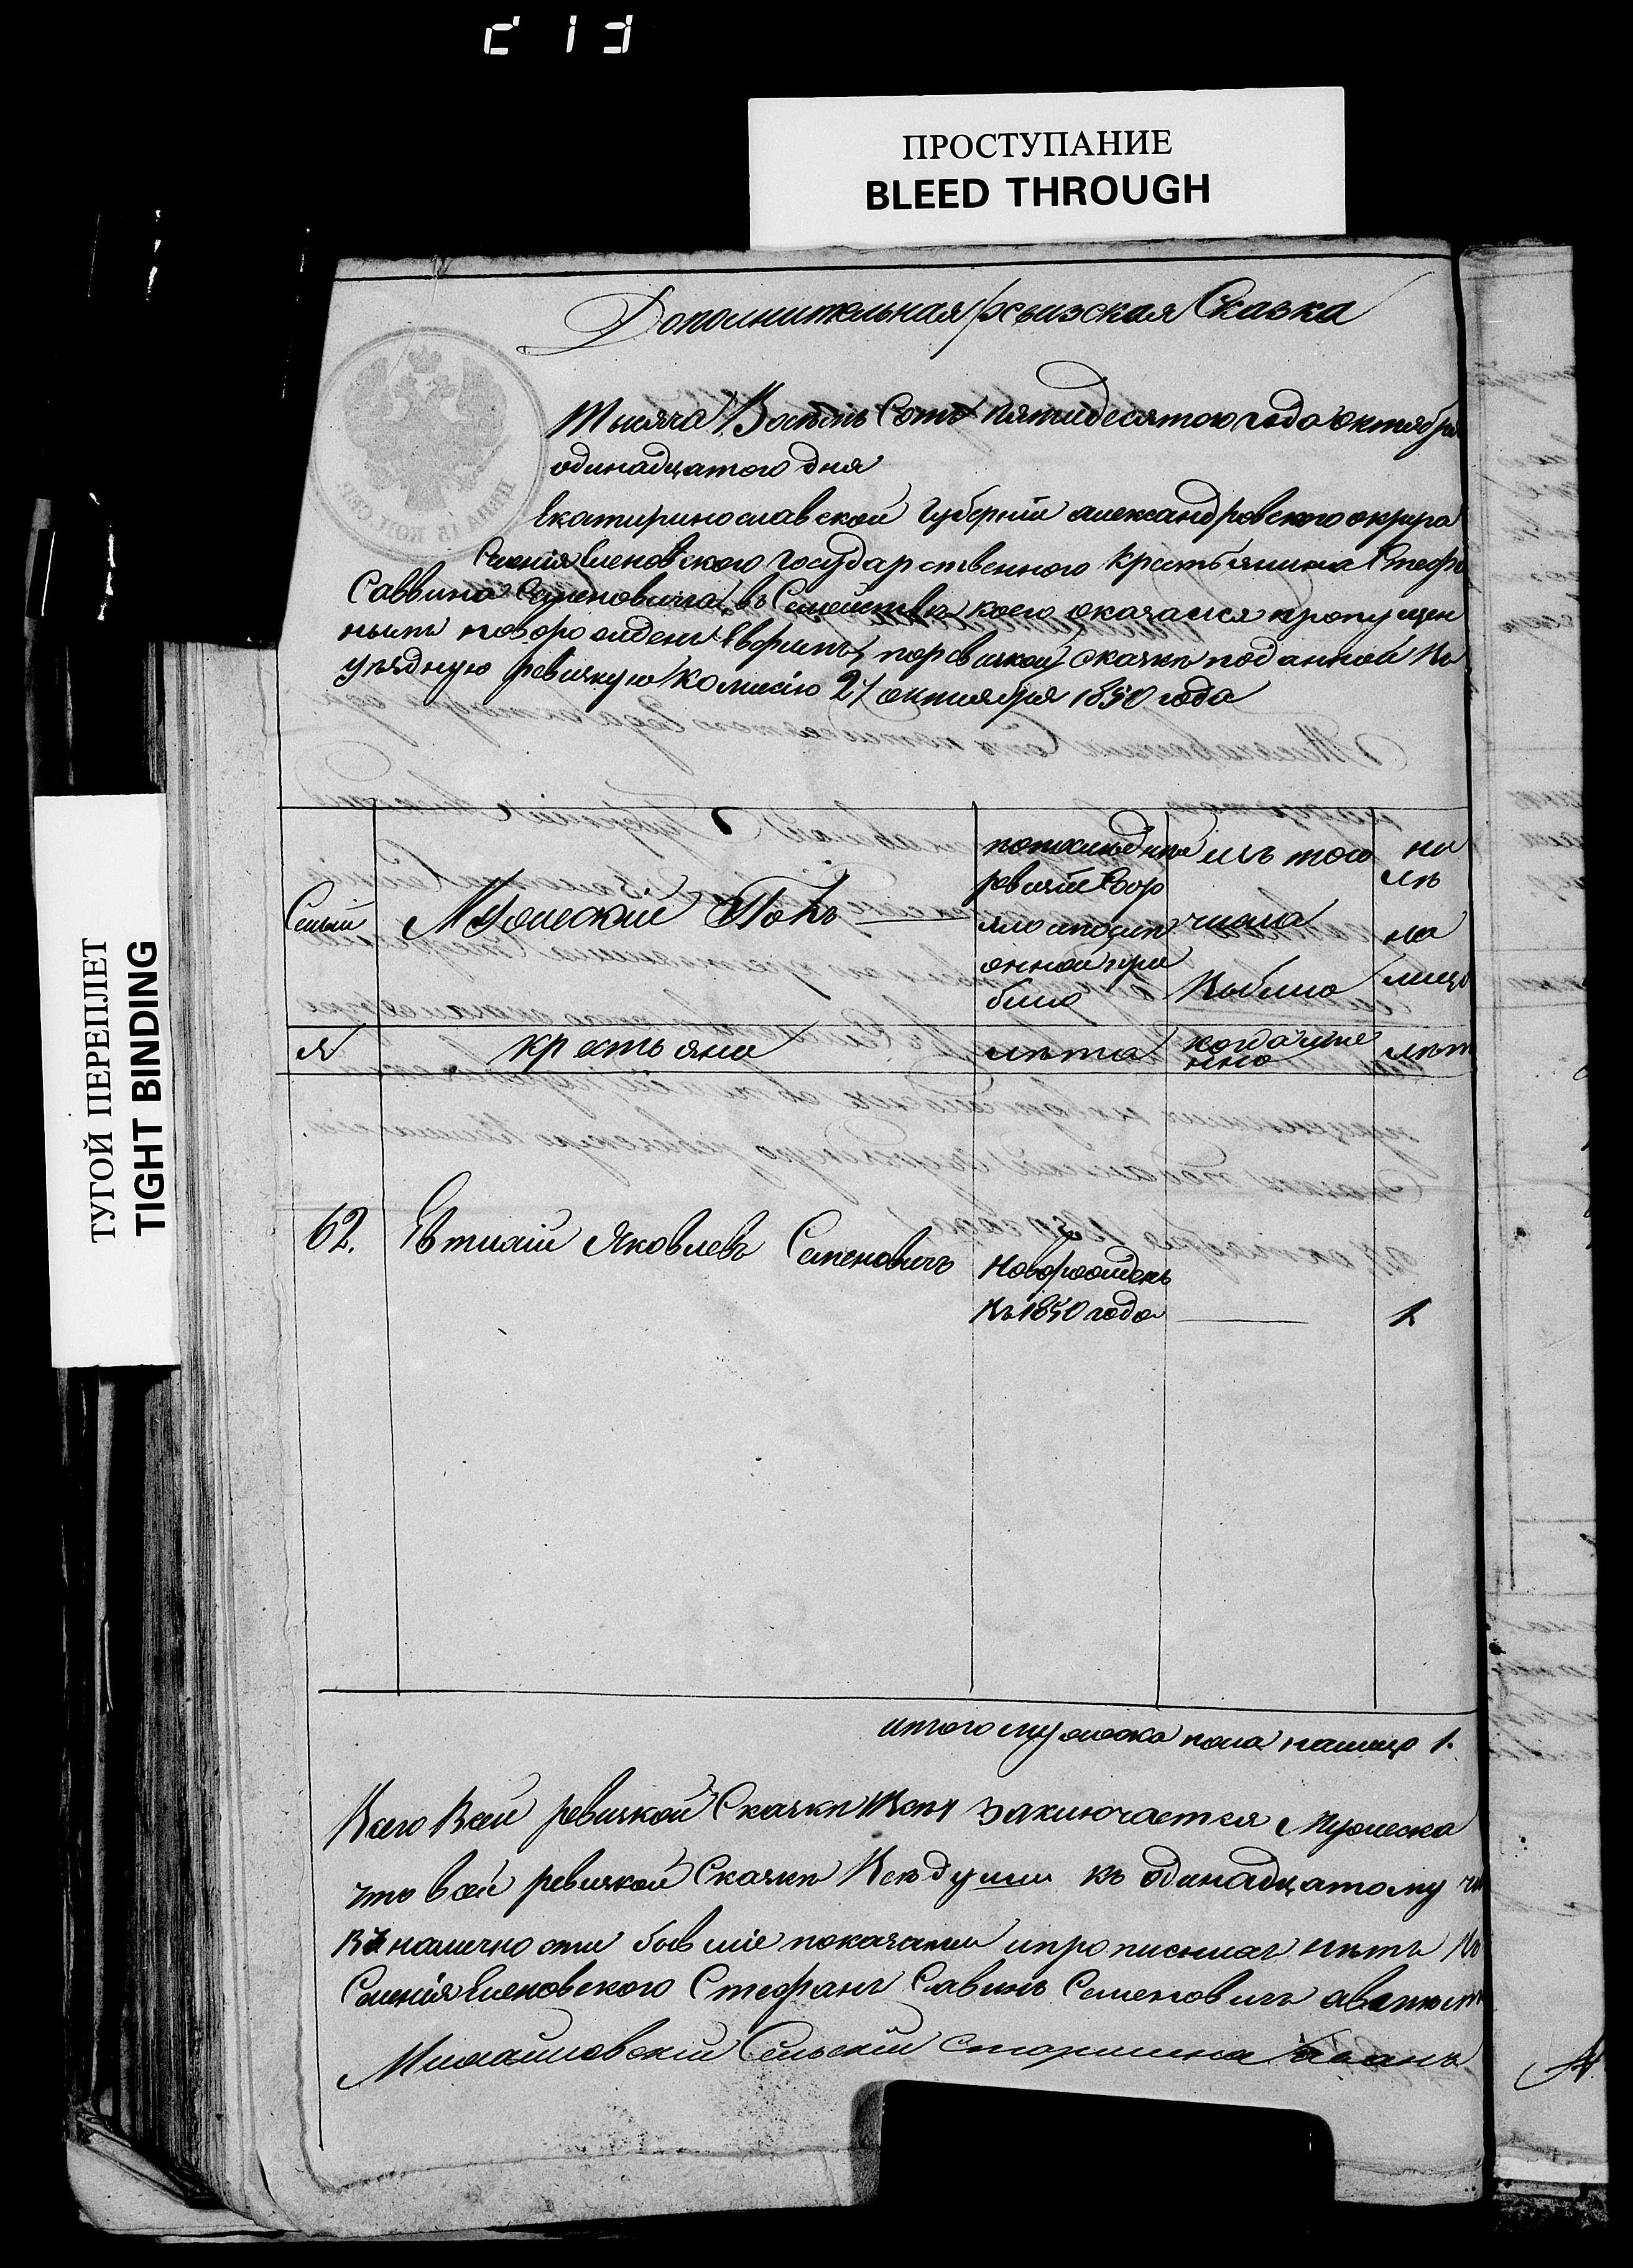 213
ПРОСТУПАНИЕ
BLEED THROUGH
ТУГОЙ ПЕРЕПЛЕТ
TIGHT BINDING
Дополнительная ревизская Сказка
Тысяча Восемь Сотъ пятидесятого года октября
одинадцатого дня
Екатеринославской Губерніи александровского округа
Селенія Еленовского Государственного крестьянина Стефа
Саввина Семеновича, въ Семействѣ коего оказался пропущен
нымъ новорожденъ поревизкой Сказкѣ поданной Въ
уѣздную ревизкую Комисію 21 октября 1850 года
Семьи
Мужескій Полъ
попоследней
ревизіи Состо
яло ипосле
онной при
было
изъ того
числа
Выбыло
ны
нѣ
на
лицо
№
крестьяне
лѣта
когда име
нно
лѣт
62.
Евтихій Яковлевъ Семеновичъ
Новорожденъ
Въ 1850 года
1
итого мужеска пола налицо 1.
Всего Всей ревизкой Сказки заключается Мужеска
что всей ревизкой Сказкѣ Все души къ одинадцатому чи
Въ наличности бывшіе показаны ипрописныхъ нѣтъ Въ
Селенія Еленовского Стефанъ Савинъ Семеновичъ авместо
Михайловскій Сельскій Старшина